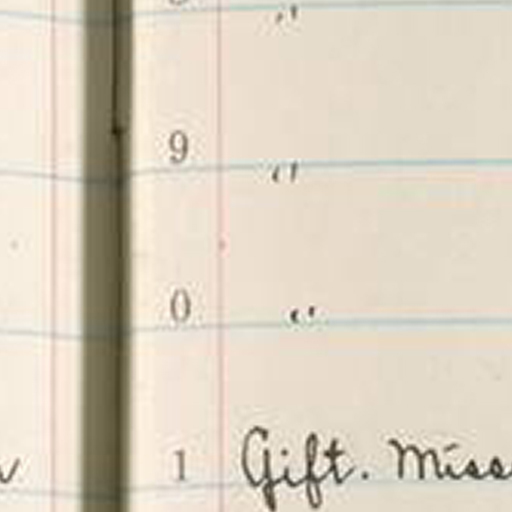 "
9 "
0 "
1 Gift. Miss